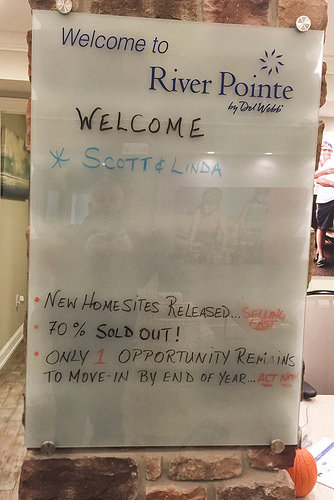 Welcome to
River Pointe
by Del Webb
WELCOME
* SCOTT & LINDA
• NEW HOMESITES RELEASED... SELLING FAST
• 70% SOLD OUT!
• ONLY 1 OPPORTUNITY REMAINS
TO MOVE-IN BY END OF YEAR... ACT NOW